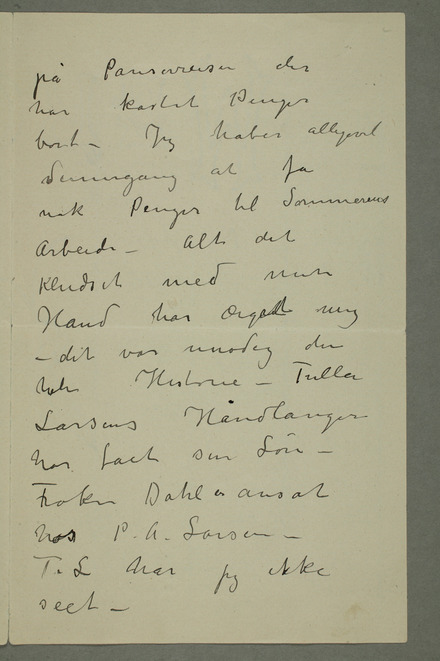 på Pariserreisen der
har kastet Penger
bort – Jeg haber alligevel
denne gang at fa
nok Penger til Sommerens
Arbeide – Alt det
Kludret med min
Haand har ærgret mig
– det var unødig den
hele Historie – Tulla
Larsens Håndlanger
har faaet sin Løn –
Frøken Dahl er ansat
hos P. A. Larsen –
T. L har jeg ikke
seet –